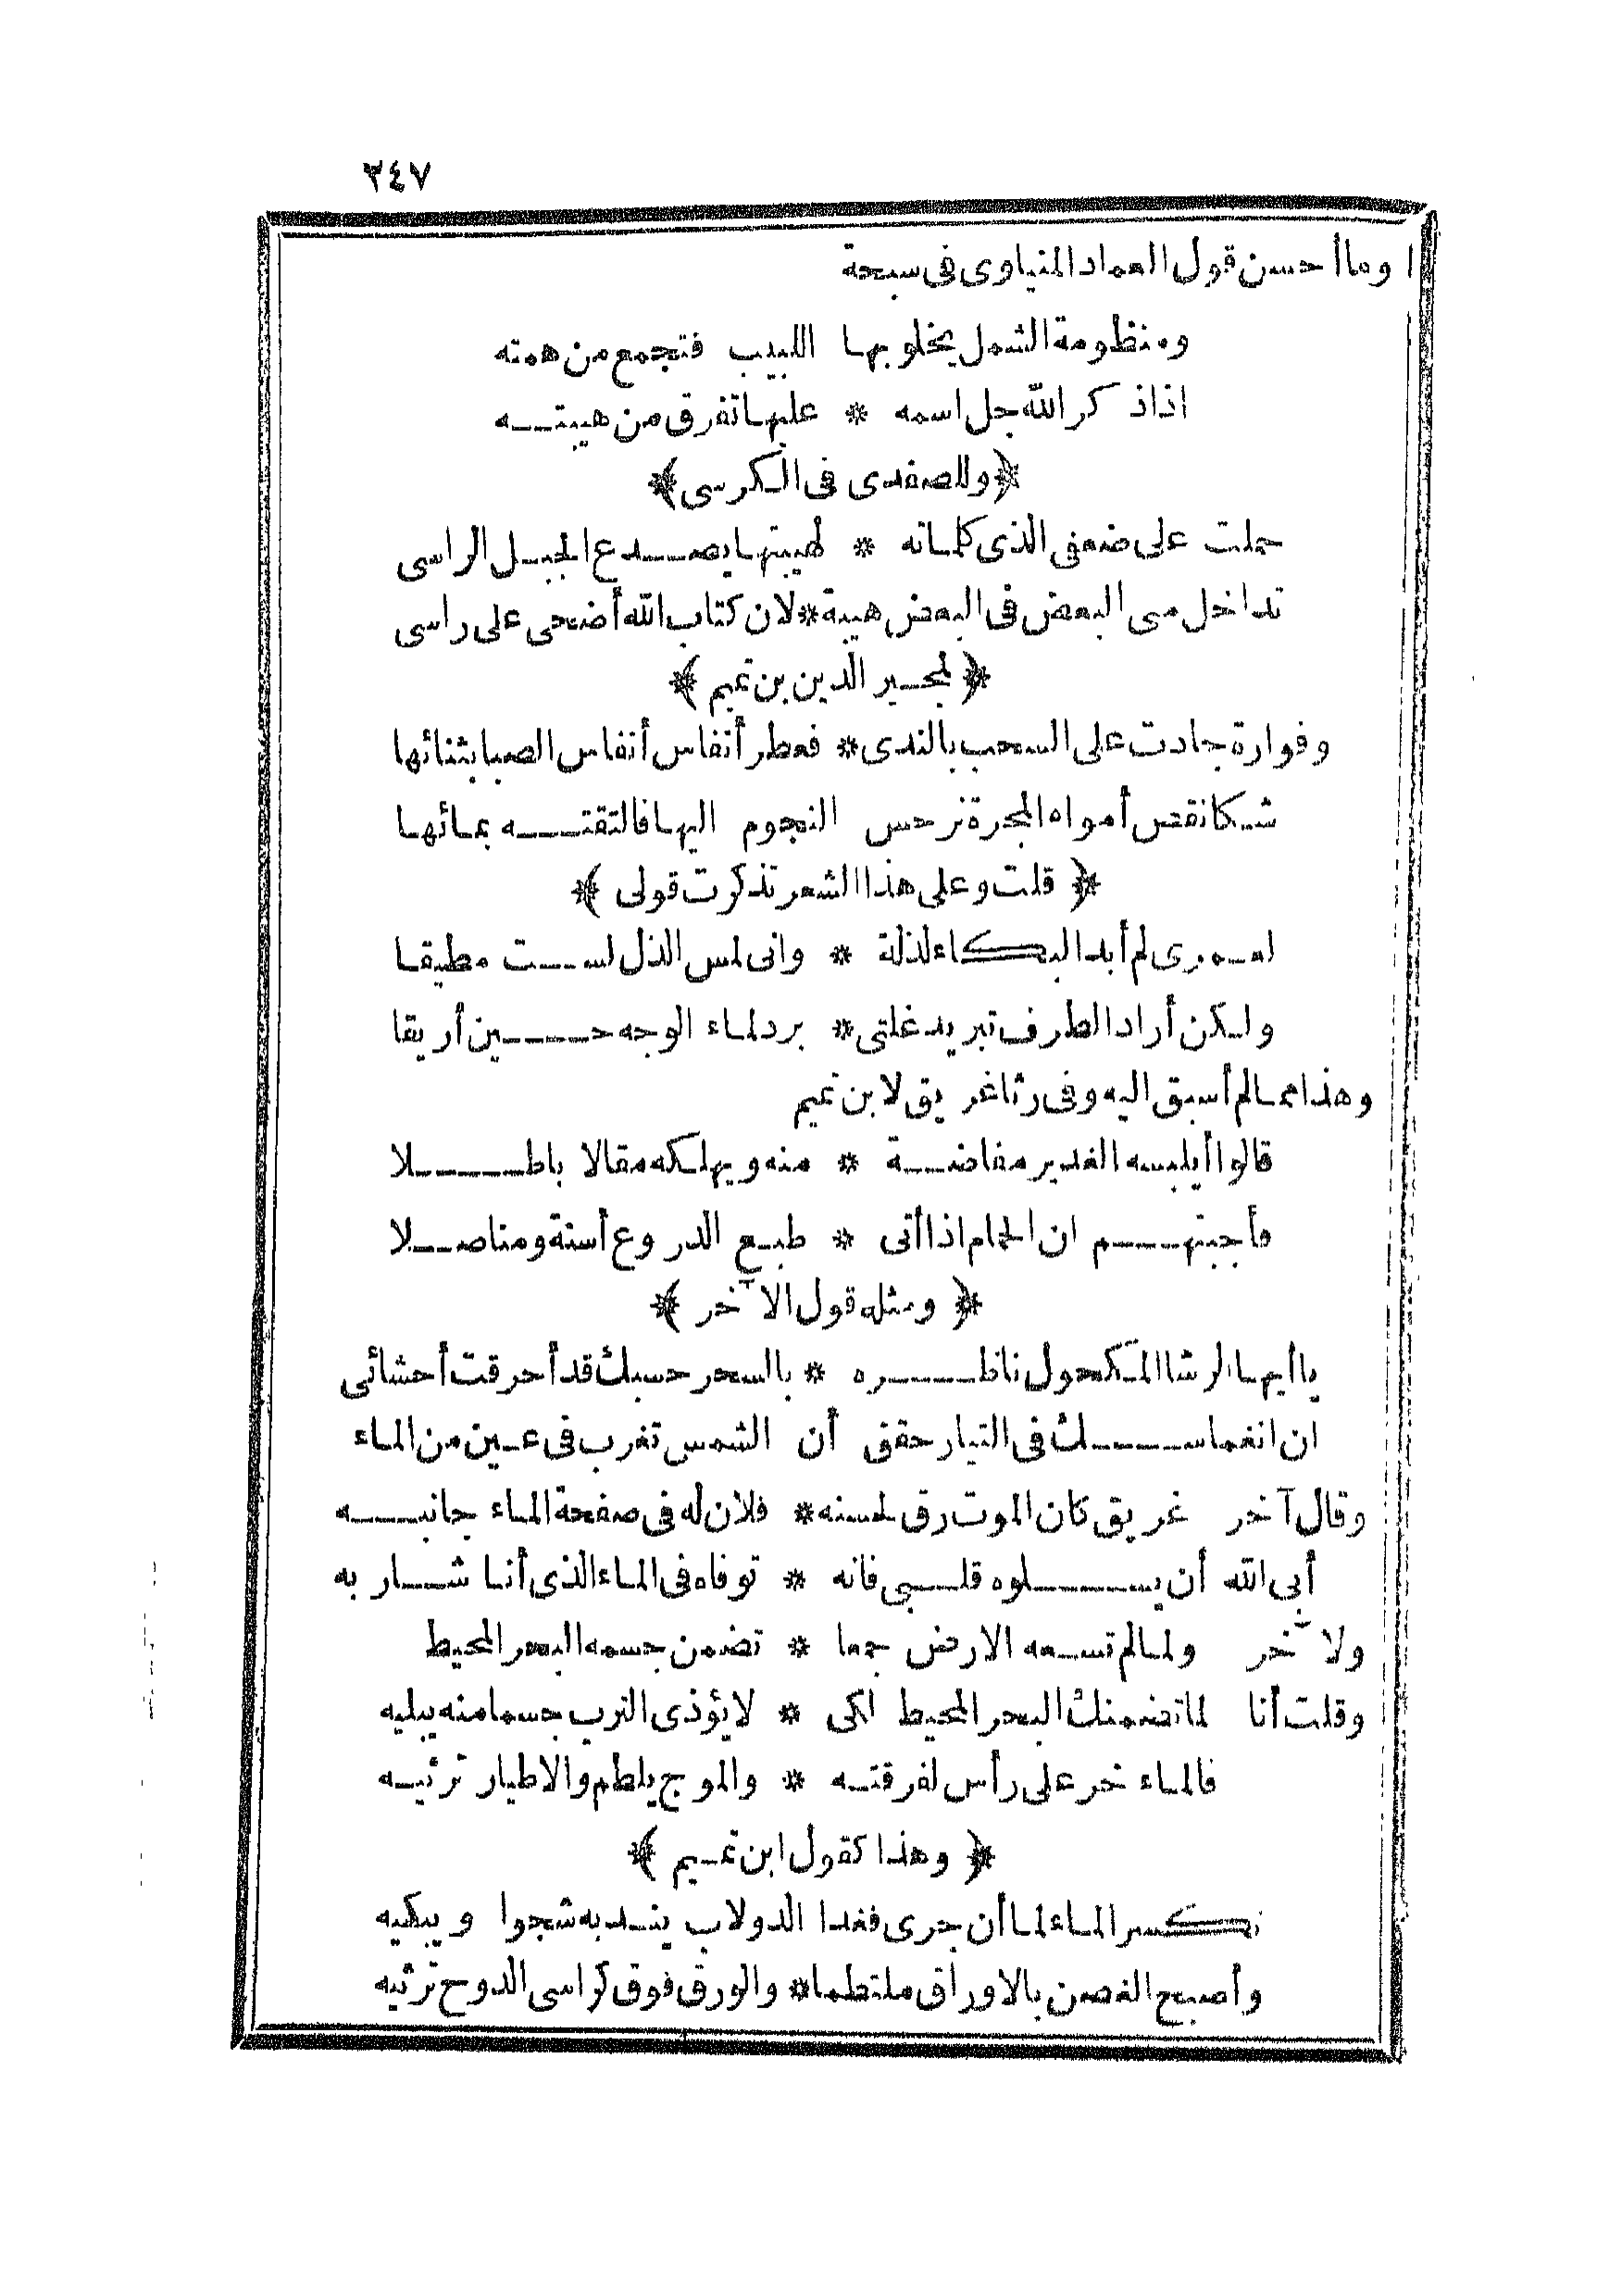 ٣٤٧
وما أحسن قول العماد المنياوى فى سبحة
ومنظومة الشمل يخلو بها اللبيب فتجمع من همته
اذا ذكر الله جل اسمه * عليها تفرق من هيبته
﴿وللصفدى فى الكرسى﴾
حملت على ضعفى الذى كلماته * لهيبتها يصدع الجبل الراسى
تداخل منى البعض فى البعض هيبة * لان كتاب الله أضحى على راسى
﴿لمجير الدين بن تميم﴾
وفوارة جادت على السحب بالندى * فعطر أنفاس أنفاس الصبا بثنائها
شكا نقص أمواه المجرة نرجس النجوم اليها فالتقته بمائها
﴿قلت وعلى هذا الشعر تذكرت قولى﴾
لعمرى لم أبد البكاء لذلة * وانى لمس الذل لست مطيقا
ولكن أراد الطرف تبريد غلتى * برد لماء الوجه حين أريقا
وهذا مما لم أسبق اليه وفى رثا غريق لابن تميم
قالوا أيلبسه الغدير مفاضة * منه ويهلكه مقالا باطلا
فأجبتهم ان الحمام اذا أتى * طبع الدروع أسنة ومناصلا
﴿ومثله قول الآخر﴾
يا أيها الرشا المكحول ناظره * بالسحر حسبك قد أحرقت أحشائى
ان انغماسك فى التيار حقق أن الشمس تغرب فى عين من الماء
وقال آخر غريق كان الموت رق لحسنه * فلان له فى صفحة الماء جانبه
أبى الله أن يسلوه قلبى فانه * توفاه فى الماء الذى أنا شاربه
ولآخر ولما لم تسعه الارض جمعا * تضمن جسمه البحر المحيط
وقلت أنا لما تضمنك البحر المحيط لكى * لا يؤذى الترب جسما منه يبليه
فالماء خر على رأس لفرقته * والموج يلطم والاطيار ترثيه
﴿وهذا كقول ابن تميم﴾
تكسر الماء لما أن جرى فغدا الدولاب يندبه شجوا ويبكيه
وأصبح الغصن بالاوراق ملتطما * والورق فوق كراسى الدوح ترثيه